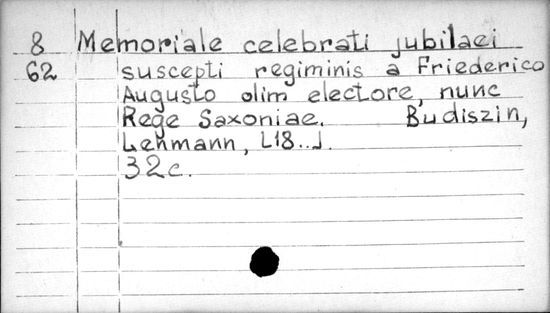 8 Memoriale celebrati jubilaei
62 suscepti regiminis a Friederico
Augusto olim electore, nunc
Rege Saxoniae. Budiszin,
Lehmann, [18..].
32c.